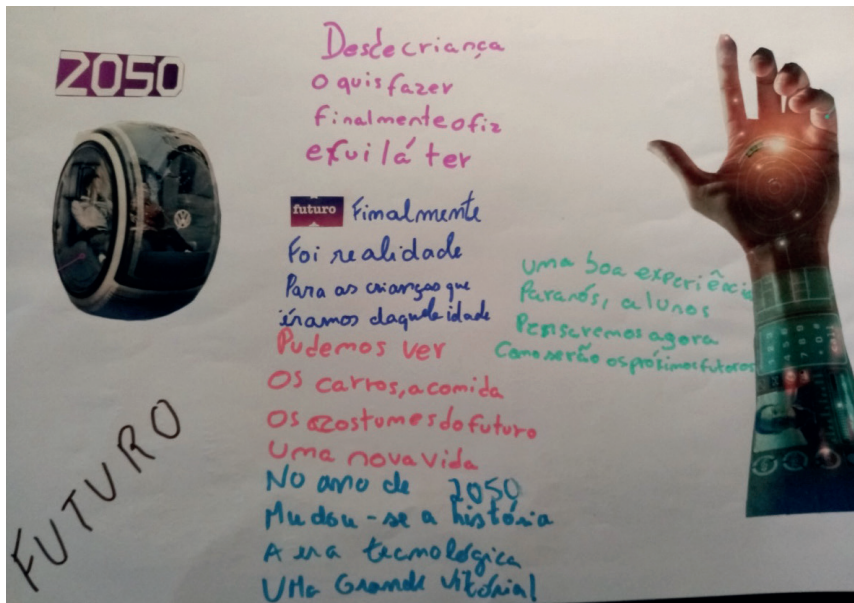 2050
Desde criança
o quis fazer
finalmente o fiz
e fui lá ter
futuro Finalmente
Foi realidade
Para as crianças que
éramos daquela idade
Pudemos ver
Os carros, a comida
Os costumes do futuro
Uma nova vida
No ano de 2050
Mudou-se a história
A era tecnológica
UMa Grande Vitória!
uma boa experiência
Para nós, alunos
Pensaremos agora
Como serão os próximos futuros
FUTURO